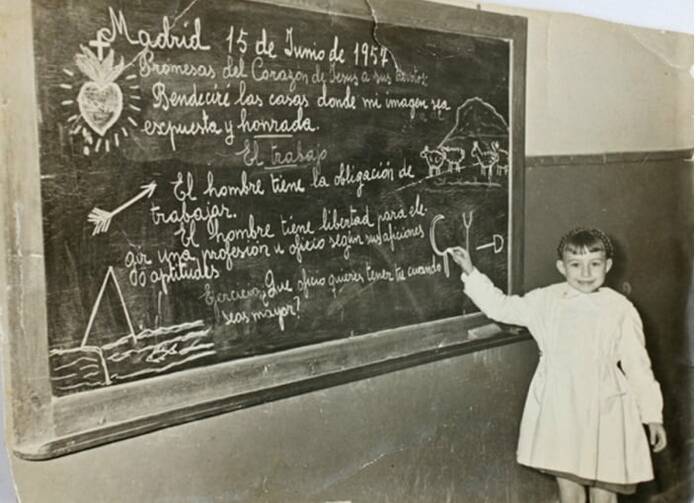 Madrid 15 de Junio de 1957
Promesas del Corazon de Jesus a sus
Bendeciré las casas donde mi imagen sea
expuesta y honrada.
El trabajo
El hombre tiene la obligación de
trabajar.
El hombre tiene libertad para ele-
gir una profesión u oficio según sus aficiones
o aptitudes
Ejercicio, Que oficio quieres tener tu cuando
seas mayor?